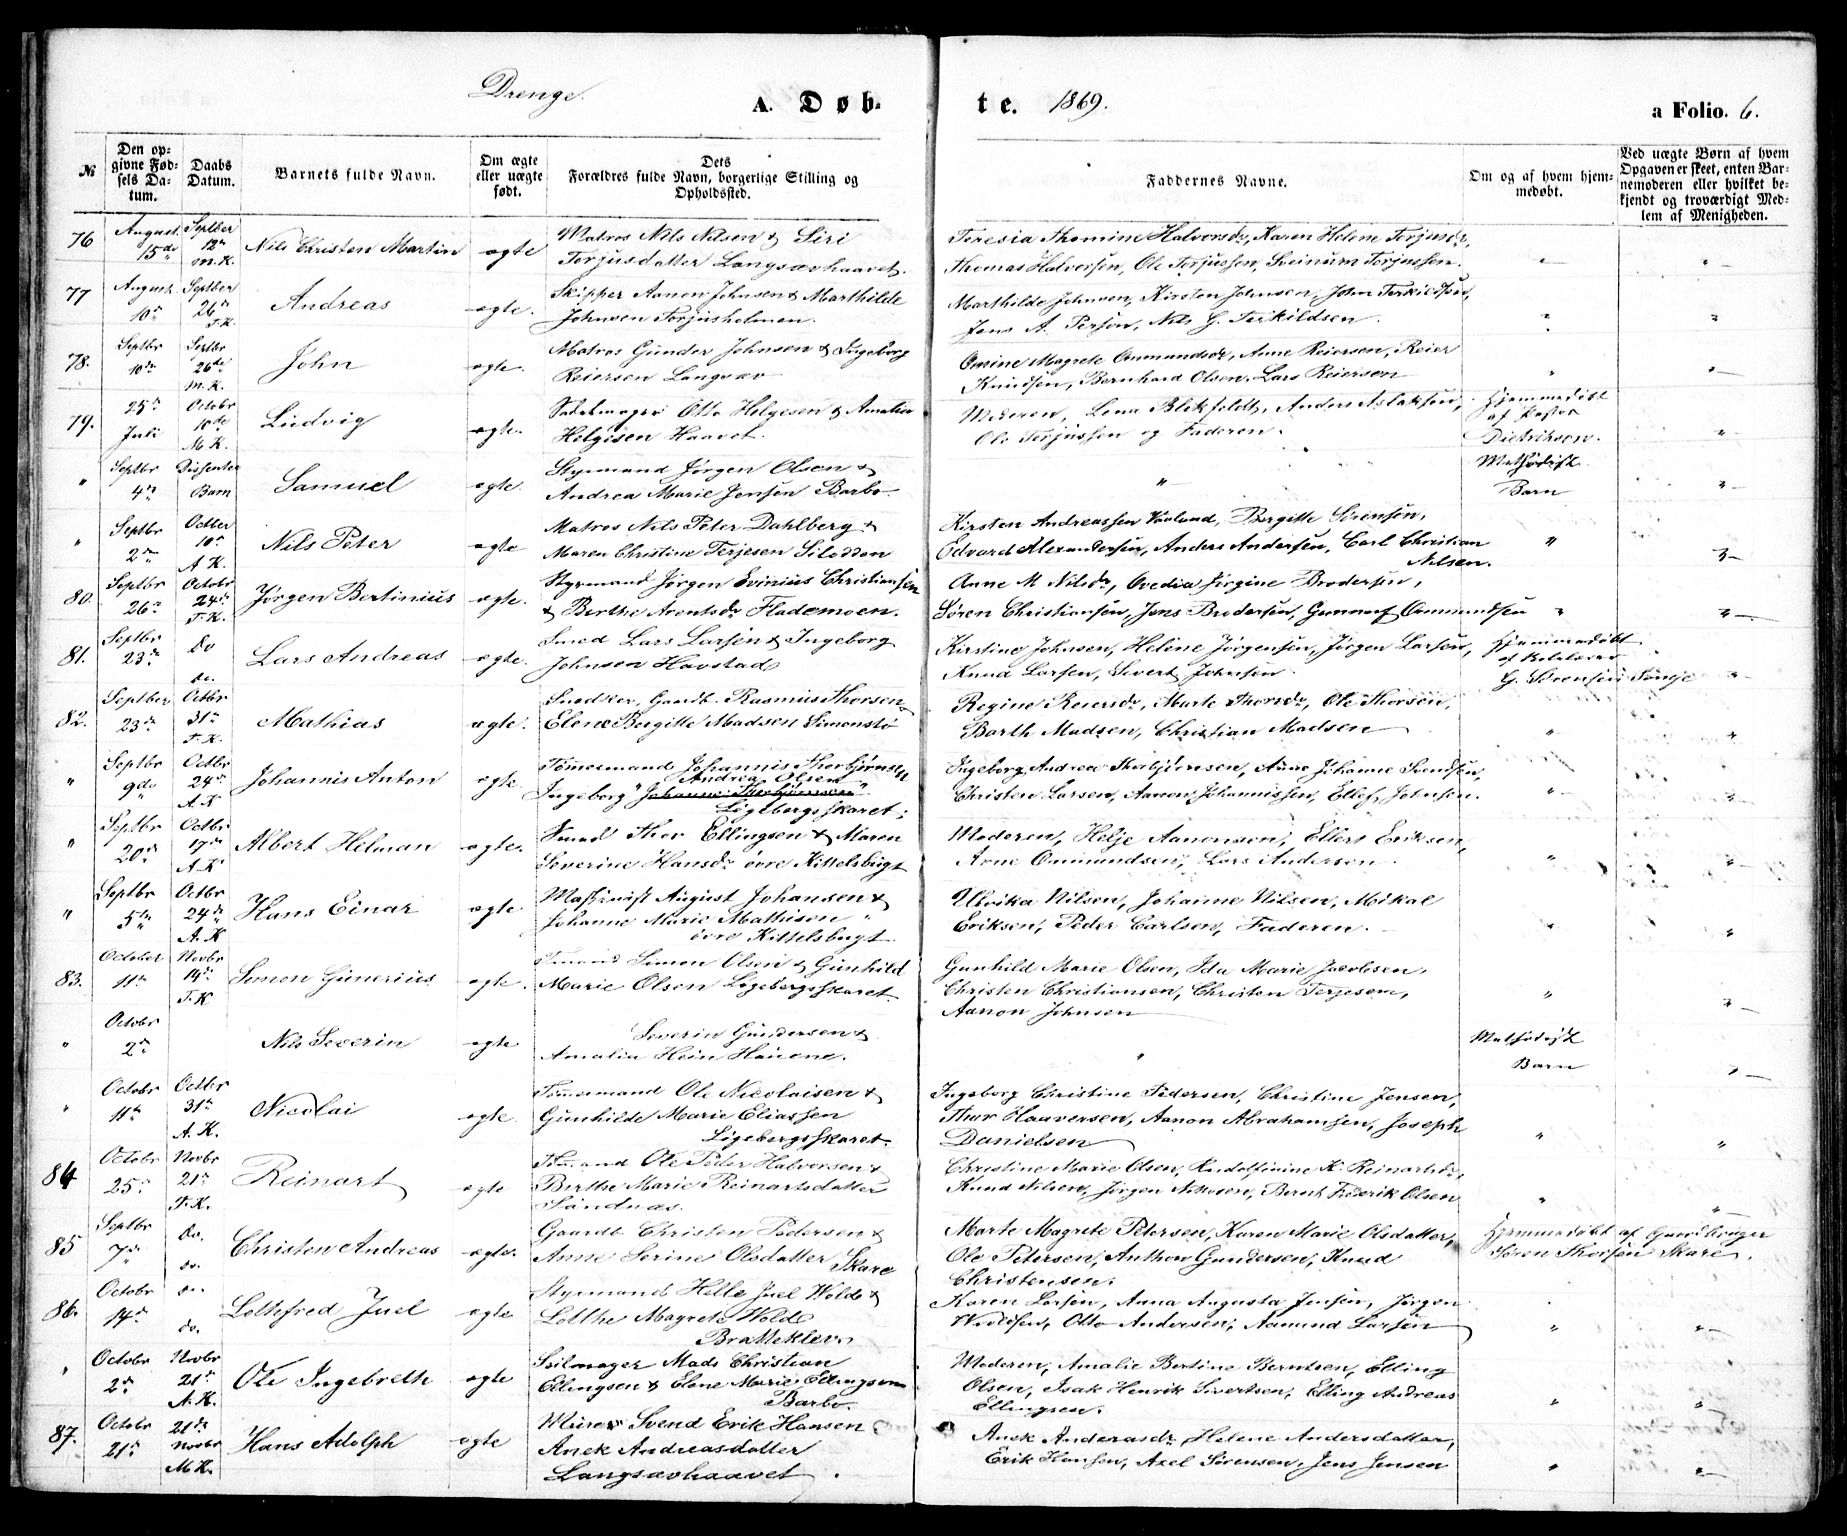 Drenge. A. Døb- te. 1869. a Folio. 6.
№ Den opgivne Fødsels Datum. Daabs Datum. Barnets fulde Navn. Om ægte eller uægte født. Dets Forældres fulde Navn, borgerlige Stilling og Opholdssted. Faddernes Navne. Om og af hvem hjemmedøbt. Ved uægte Børn af hvem Opgaven er skeet, enten Barnemoderen eller hvilket bekjendt og troværdigt Medlem af Menigheden.
76 August 15de Septber 12te M.K. Nils Christen Martin ægte
Matros Nils Nilsen & Siri
Torjusdatter Langsævhaavet.
Teresia Thomine Halvorsdr, Karen Helene Torjusdr,
Thomas Halvorsen, Ole Torjussen, Sveinum Torjussen.
77 August 10de Septber 26de T.K. Andreas ægte.
Skipper Aanon Johnsen & Marthilde
Johnsen Torjusholmen.
Marthilde Johnsen, Kirsten Johnsen, John Terkildsen,
Jens A. Person, Nils G. Terkildsen.
78. Septbr 10de Septbr 26de M.K. John ægte.
Matros Gunder Johnsen & Ingeborg
Reiersen Langsæv
Omine Magrete Ommundsdr, Anne Reiersen, Reier
Knudsen, Bernhard Olsen, Lars Reiersen
79. 25de Juli Octobr 10de M.K. Ludvig ægte.
Otto Helgesen & Amalia
Helgesen Haavet.
Moderen, Lena Blikfeldt, Anders Aslaksen,
Ole Torjussen og Faderen.
Hjemmedøbt
af Pastor
Dietrikson.
" Septbr 4de Dissenter Barn Samuel ægte.
Styrmand Jørgen Olsen &
Andrea Marie Jensen Barbo.
"
Methodist
Barn
" Septbr 2de Octber 10de A.K. Nils Peter ægte
Matros Nils Peter Dahlberg &
Maren Christine Terjesen Silodden
Kirsten Andreassen Vaaland, Bergitte Sørensen,
Edvard Alexandersen, Anders Andersen, Carl Christian
Nilsen.
80. Septbr 26de Octobr 24de T.K. Jørgen Bertinius ægte.
Styrmand Jørgen Evinius Christiansen
& Birthe Arentsdr Flademoen.
Anne M. Nilsdr, Ovedia Jørgine Brodersen,
Søren Christiansen, Jens Brodersen, Gunnuf Ommundsen
81. Septbr 23de Do do. Lars Andreas ægte.
Smed Lars Larsen & Ingeborg
Johnsen Havstad
Kirstine Johnsen, Helene Jørgensen, Jørgen Larsen,
Knud Larsen, Sivert Johnsen.
Hjemmedøbt
af Kolelærer
G. Sørensen Songe
82. Septber 23de Octbr 31te T.K. Mathias ægte.
Snedker, Gaardb. Rasmus Thorsen
Elene Birgitte Madsen Simonstø
Regine Reiersdr, Marte Thorsdr, Ole Thorsen,
Barth Madsen, Christian Madsen
" Septbr 9de Octbr 24de A.K Johannis Anton ægte
Tømmermand Johannis Thorbjørnsen
Andrea Olsen
Ingeborg Johanne Thorbjørnsen
Løgebergsskaret.
Ingeborg Andrea Thorbjørnsen, Anne Johanne Svendsen,
Christen Larsen, Aanon Johannissen, Ellef Johnsen.
" Septbr 20de Octbr 17de A.K Albert Helman ægte.
Smed Thor Ellingsen & Maren
Severine Hansdr øvre Kittelsbugt
Moderen, Helje Aanonsen, Ellert Eriksen,
Arne Ommundsen, Lars Andersen.
" Septbr 5te Octbr 24de A.K Hans Einar ægte
Maskinist August Johansen &
Johanne Marie Mathisen
øvre Kittelsbugt
Ulrika Nilsen, Johanne Nilsen, Mikal
Eriksen, Peder Carlsen, Faderen.
83. October 11te Novbr 14de T.K Simon Gunerius ægte.
Simon Olsen & Gunhild
Marie Olsen Løgebergsskaret
Gunhild Marie Olsen, Ida Marie Jacobsen,
Christen Christiansen, Christen Terjesen,
Aanon Johnsen
" Octobr 2de Nils Severin ægte
Severin Gundersen &
Amalia Hein
"
Methodist
Barn
" Octobr 11te Octbr 31te A.K. Nicolai ægte.
Tømmermand Ole Nicolaisen &
Gunhilde Marie Eliassen
Løgebergsskaret.
Ingeborg Christine Pedersen, Christine Jensen,
Thor Haaversen, Aanon Abrahamsen, Joseph
Danielsen
84 Octobr 25de Novbr 21de T.K. Reinart ægte
Ole Peder Halvorsen &
Birthe Marie Reinartsdatter
Sandnæs.
Christine Marie Olsen, Rudolfinine K. Reinartsdr,
Knud Nilsen, Jørgen Nilsen, Bernt Fredrik Olsen
85 Septbr 7de Do. do. Christen Andreas ægte.
Gaardb Christen Pedersen &
Anne Serine Olsdatter Skare
Marte Magrete Petersen, Karen Marie Olsdatter,
Ole Petersen, Anthon Gundersen, Knud
Christensen.
Hjemmedøbt af Gaardbruger
Søren Thorsen Skare.
86. Octobr 14de do. do. Lothefred Juel ægte
Styrmand Helle Juel Wold &
Lothe Magrete Wold
Brattekleiv
Karen Larsen, Anna Augusta Jensen, Jørgen
Woldsen, Otto Andersen, Aamund Larsen
" Octobr 2de Novbr 21de A.K. Ole Ingebreth ægte
Seilmager Mads Christian
Ellingsen & Elene Marie Ellingsen
Barbo.
Moderen, Amalie Bertine Berntsen, Elling
Olsen, Isak Henrik Sivertsen, Elling Andreas
Ellingsen.
87. Octobr 21de 21de Novbr M.K. Hans Adolph ægte
Murer Svend Erik Hansen &
Anek Andreasdatter
Langsævhaavet.
Anek Anderasdr, Helene Andersdatter,
Erik Hansen, Axel Sørensen, Jens Jensen